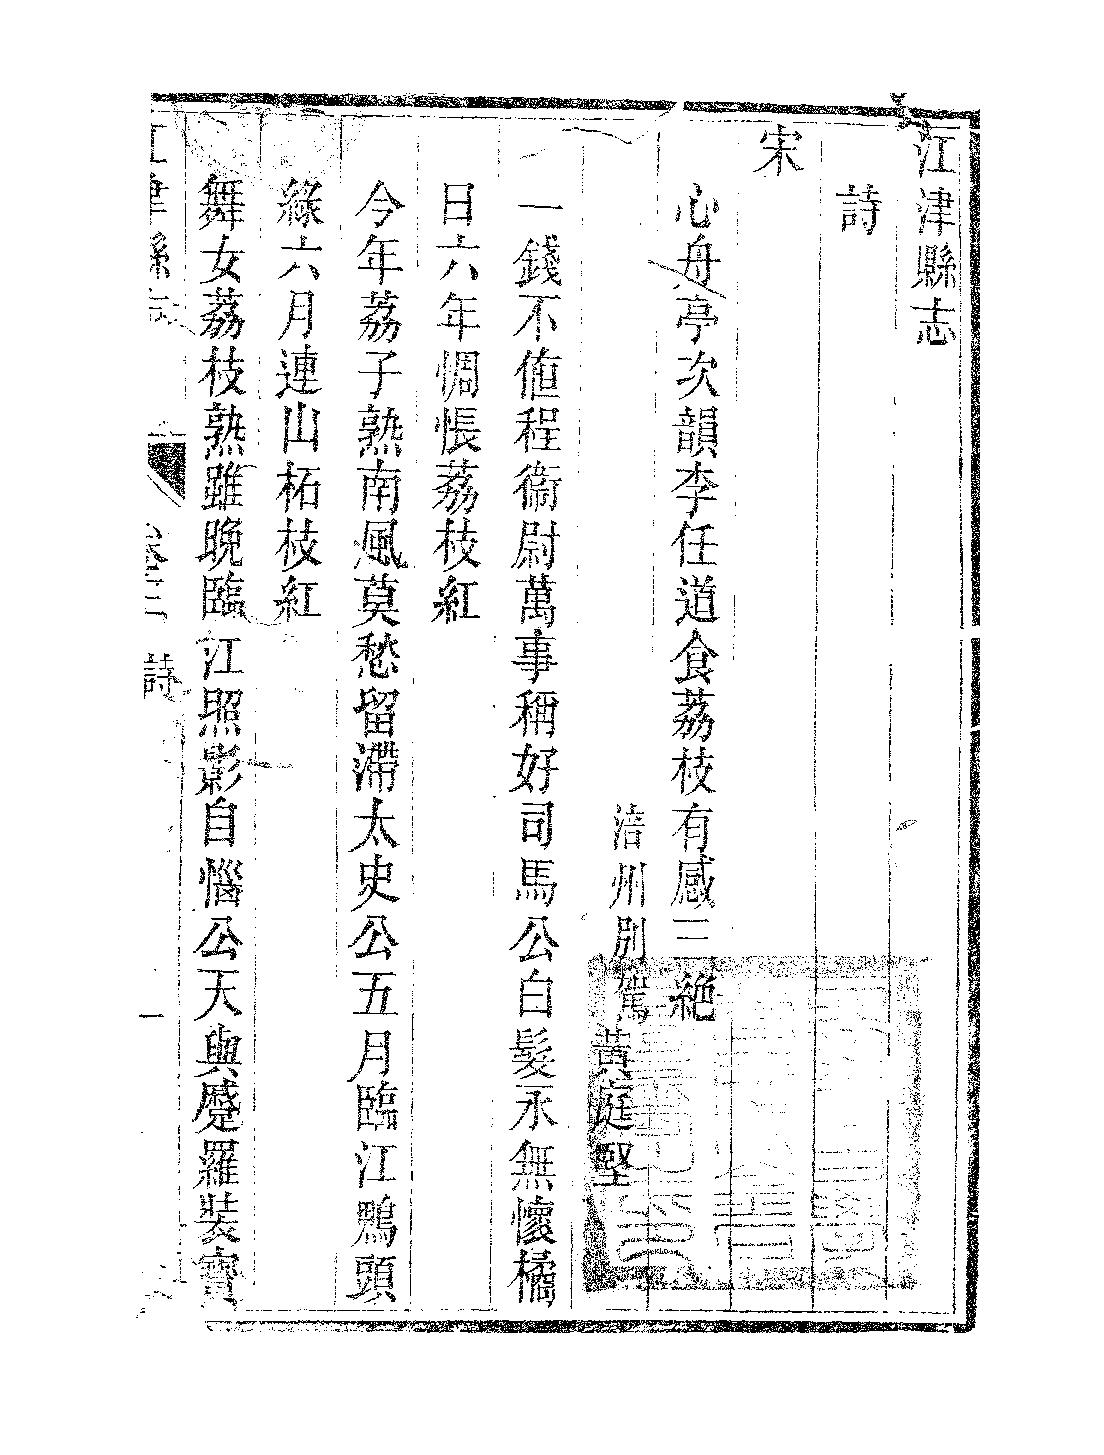 江津縣志
詩
宋
心舟亭次韻李任道食荔枝有感三絶
涪州別駕黃庭堅
一錢不値程衞尉萬事稱好司馬公白髮永無懷橘
日六年惆悵荔枝紅
今年荔子熟南風莫愁留滯太史公五月臨江鴨頭
綠六月連山柘枝紅
舞女荔枝熟雖晚臨江照影自惱公天與蹙羅裝寶
江津縣志 卷三 詩 一